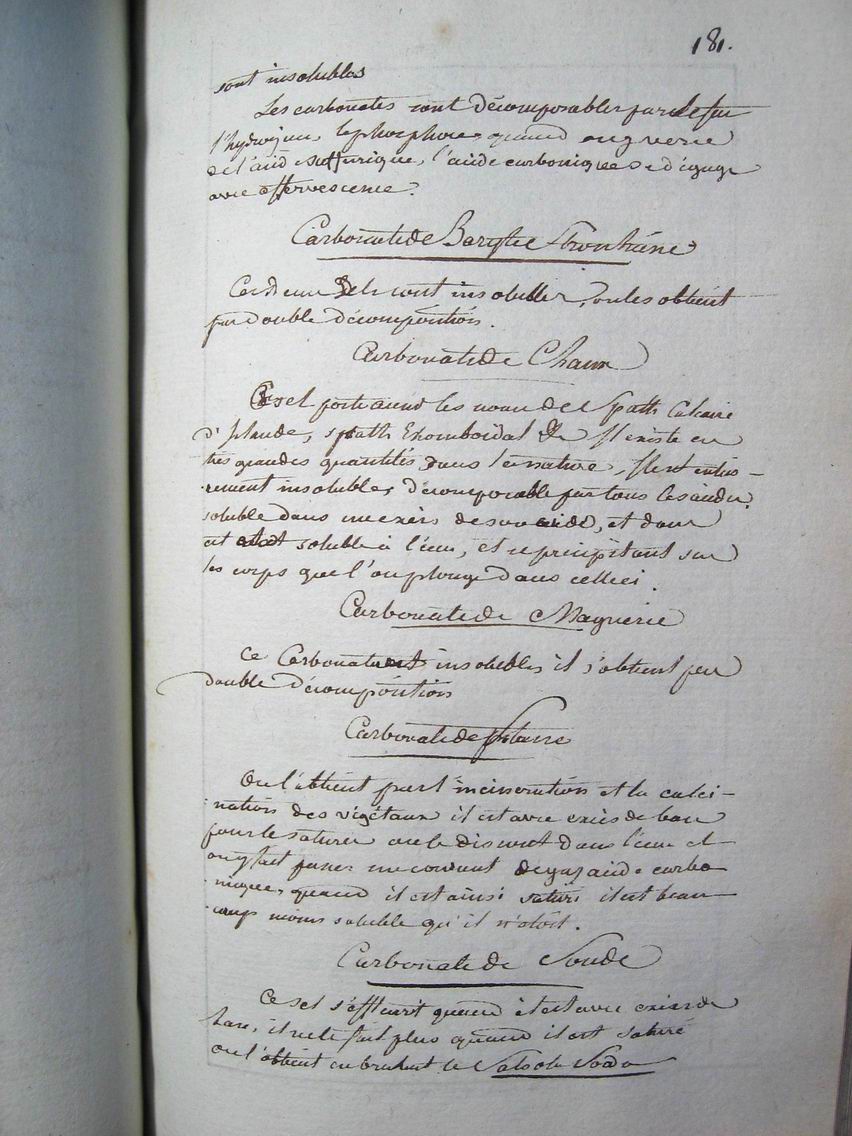 181.
sont insolubles
Les carbonates sont décomposables par le feu
l'hydrogene, le phosphore, quand on y verse
de l'acide sulfurique, l'acide carbonique se dégage
avec effervescence.
Carbonate de Baryte Strontiane
Ces deux Sels sont insolubles, on les obtient
par double décomposition.
Carbonate de Chaux
Ce sel porte aussi les noms de Spath Calcaire
d'Islande, spath Rhomboïdal Il existe en
très grandes quantités dans la nature, Il est entie-
rement insoluble, décomposable par tous les acides,
soluble dans un excès de son acide, et dans
cet etat soluble à l'eau, et se précipitant sur
les corps que l'on plonge dans celleci.
Carbonate de Magnésie
Ce Carbonate est insoluble, il s'obtient par
double décomposition
Carbonate de Potasse
On l'obtient par l'incineration et la calci-
nation des végétaux il est avec excès de base
pour le saturer on le dissout dans l'eau et
on y fait passer un courant de gaz acide carbo
nique, quand il est ainsi saturé il est beau-
coup moins soluble qu'il n'étoit.
Carbonate de Soude
Ce sel s'effleurit quand il est avec excès de
base, il ne le fait plus quand il est saturé
on l'obtient en brulant le Salsola Soda